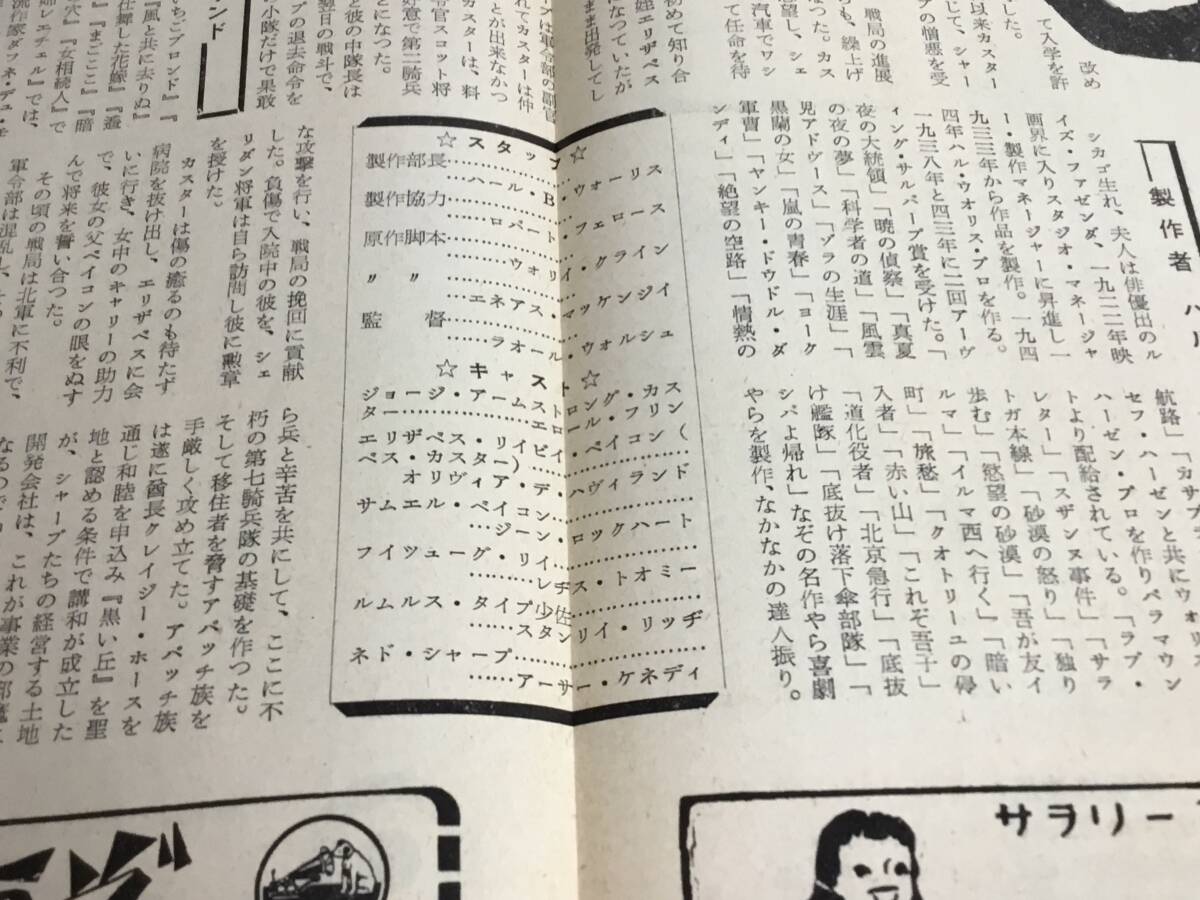 改め
て入学を許
した。
以来カスター
じて、シャー
プの憎悪を受
戦局の進展
らも、繰上げ
なった。カス
望し、シェ
汽車でワシ
て任命を待
初めて知り合
娃エリザベス
になつていたが
まま出発してし
プは軍令部の副官
れてカスターは仲
とが出来なかつ
カスターは、料
令官スコット将
好意で第二騎兵
と彼の中隊長は
とになつた。
翌日の戦斗で、
プの退去命令を
小隊だけで果敢
な攻撃を行い、戦局の挽回に貢献
した。負傷で入院中の彼を、シェ
リダン将軍は自ら訪問し彼に勲章
を授けた。
カスターは傷の癒るのも待たず
病院を抜け出し、エリザベスに会
いに行き、女中のキャリーの助力
で、彼女の父ベイコンの眼をぬす
んで将来を誓い合つた。
その頃の戦局は北軍に不利で、
軍令部は混乱し、
ら兵と辛苦を共にして、ここに不
朽の第七騎兵隊の基礎を作つた。
そして移住者を脅すアパッチ族を
手厳しく攻め立てた。アパッチ族
は遂に酋長クレイジー・ホースを
通じ和睦を申込み『黒い丘』を聖
地と認める条件で講和が成立した
が、シャープたちの経営する土地
開発会社は、これが事業の邪魔に
なるので
製作者 ハル
シカゴ生れ、夫人は俳優出のル
イズ・ファゼンダ、一九二二年映
画界に入りスタジオ・マネージャ
ー・製作マネージャーに昇進し一
九三三年から作品を製作。一九四
四年ハル・ウオリス・プロを作る。
一九三八年と四三年に二回アーヴ
ィング・サルバーグ賞を受けた。「
夜の大統領」「暁の偵察」「真夏
の夜の夢」「科学者の道」「風雲
児アドヴース」「ゾラの生涯」「
黒蘭の女」「嵐の青春」「ヨーク
軍曹」「ヤンキー・ドゥドル・ダ
ンディ」「絶望の空路」「情熱の
航路」「カサブ
セフ・ハーゼンと共にウォリス・
ハーゼン・プロを作りパラマウン
トより配給されている。「ラブ・
レター」「スザンヌ事件」「サラ
トガ本線」「砂漠の怒り」「独り
歩む」「慾望の砂漠」「吾が友イ
ルマ」「イルマ西へ行く」「暗い
町」「旅愁」「クオトリーユの停
入者」「赤い山」「これぞ吾子」
「道化役者」「北京急行」「底抜
け艦隊」「底抜け落下傘部隊」「
シバよ帰れ」なその名作やら喜劇
やらを製作、なかなかの達人振り。
☆スタッフ☆
製作部長……ハール・B・ウォーリス
製作協力……ロバート・フェロース
原作脚本……ウォリイ・クライン
〃 〃……エネアス・マッケンジイ
監督……ラオール・ウォルシュ
☆キャスト☆
ジョージ・アームストロング・カスター……エロール・フリン
エリザベス・ベイコン(ベス・カスタイ)……オリヴィア・デ・ハヴィランド
サムエル・ベイコン……ジーン・ロックハート
フイツューグ・リイ……レヂス・トオミー
ルムルス・タイプ少佐……スタンリイ・リッヂ
ネド・シャープ……アーサー・ケネディ
いちごブロンド』『
『風と共に去りぬ』
仕舞した花嫁』『遥
『まごころ』『暗
『女相続人』で
婦レェチエル』では、
流作家ダフネ・デュ・モ
サヲリー